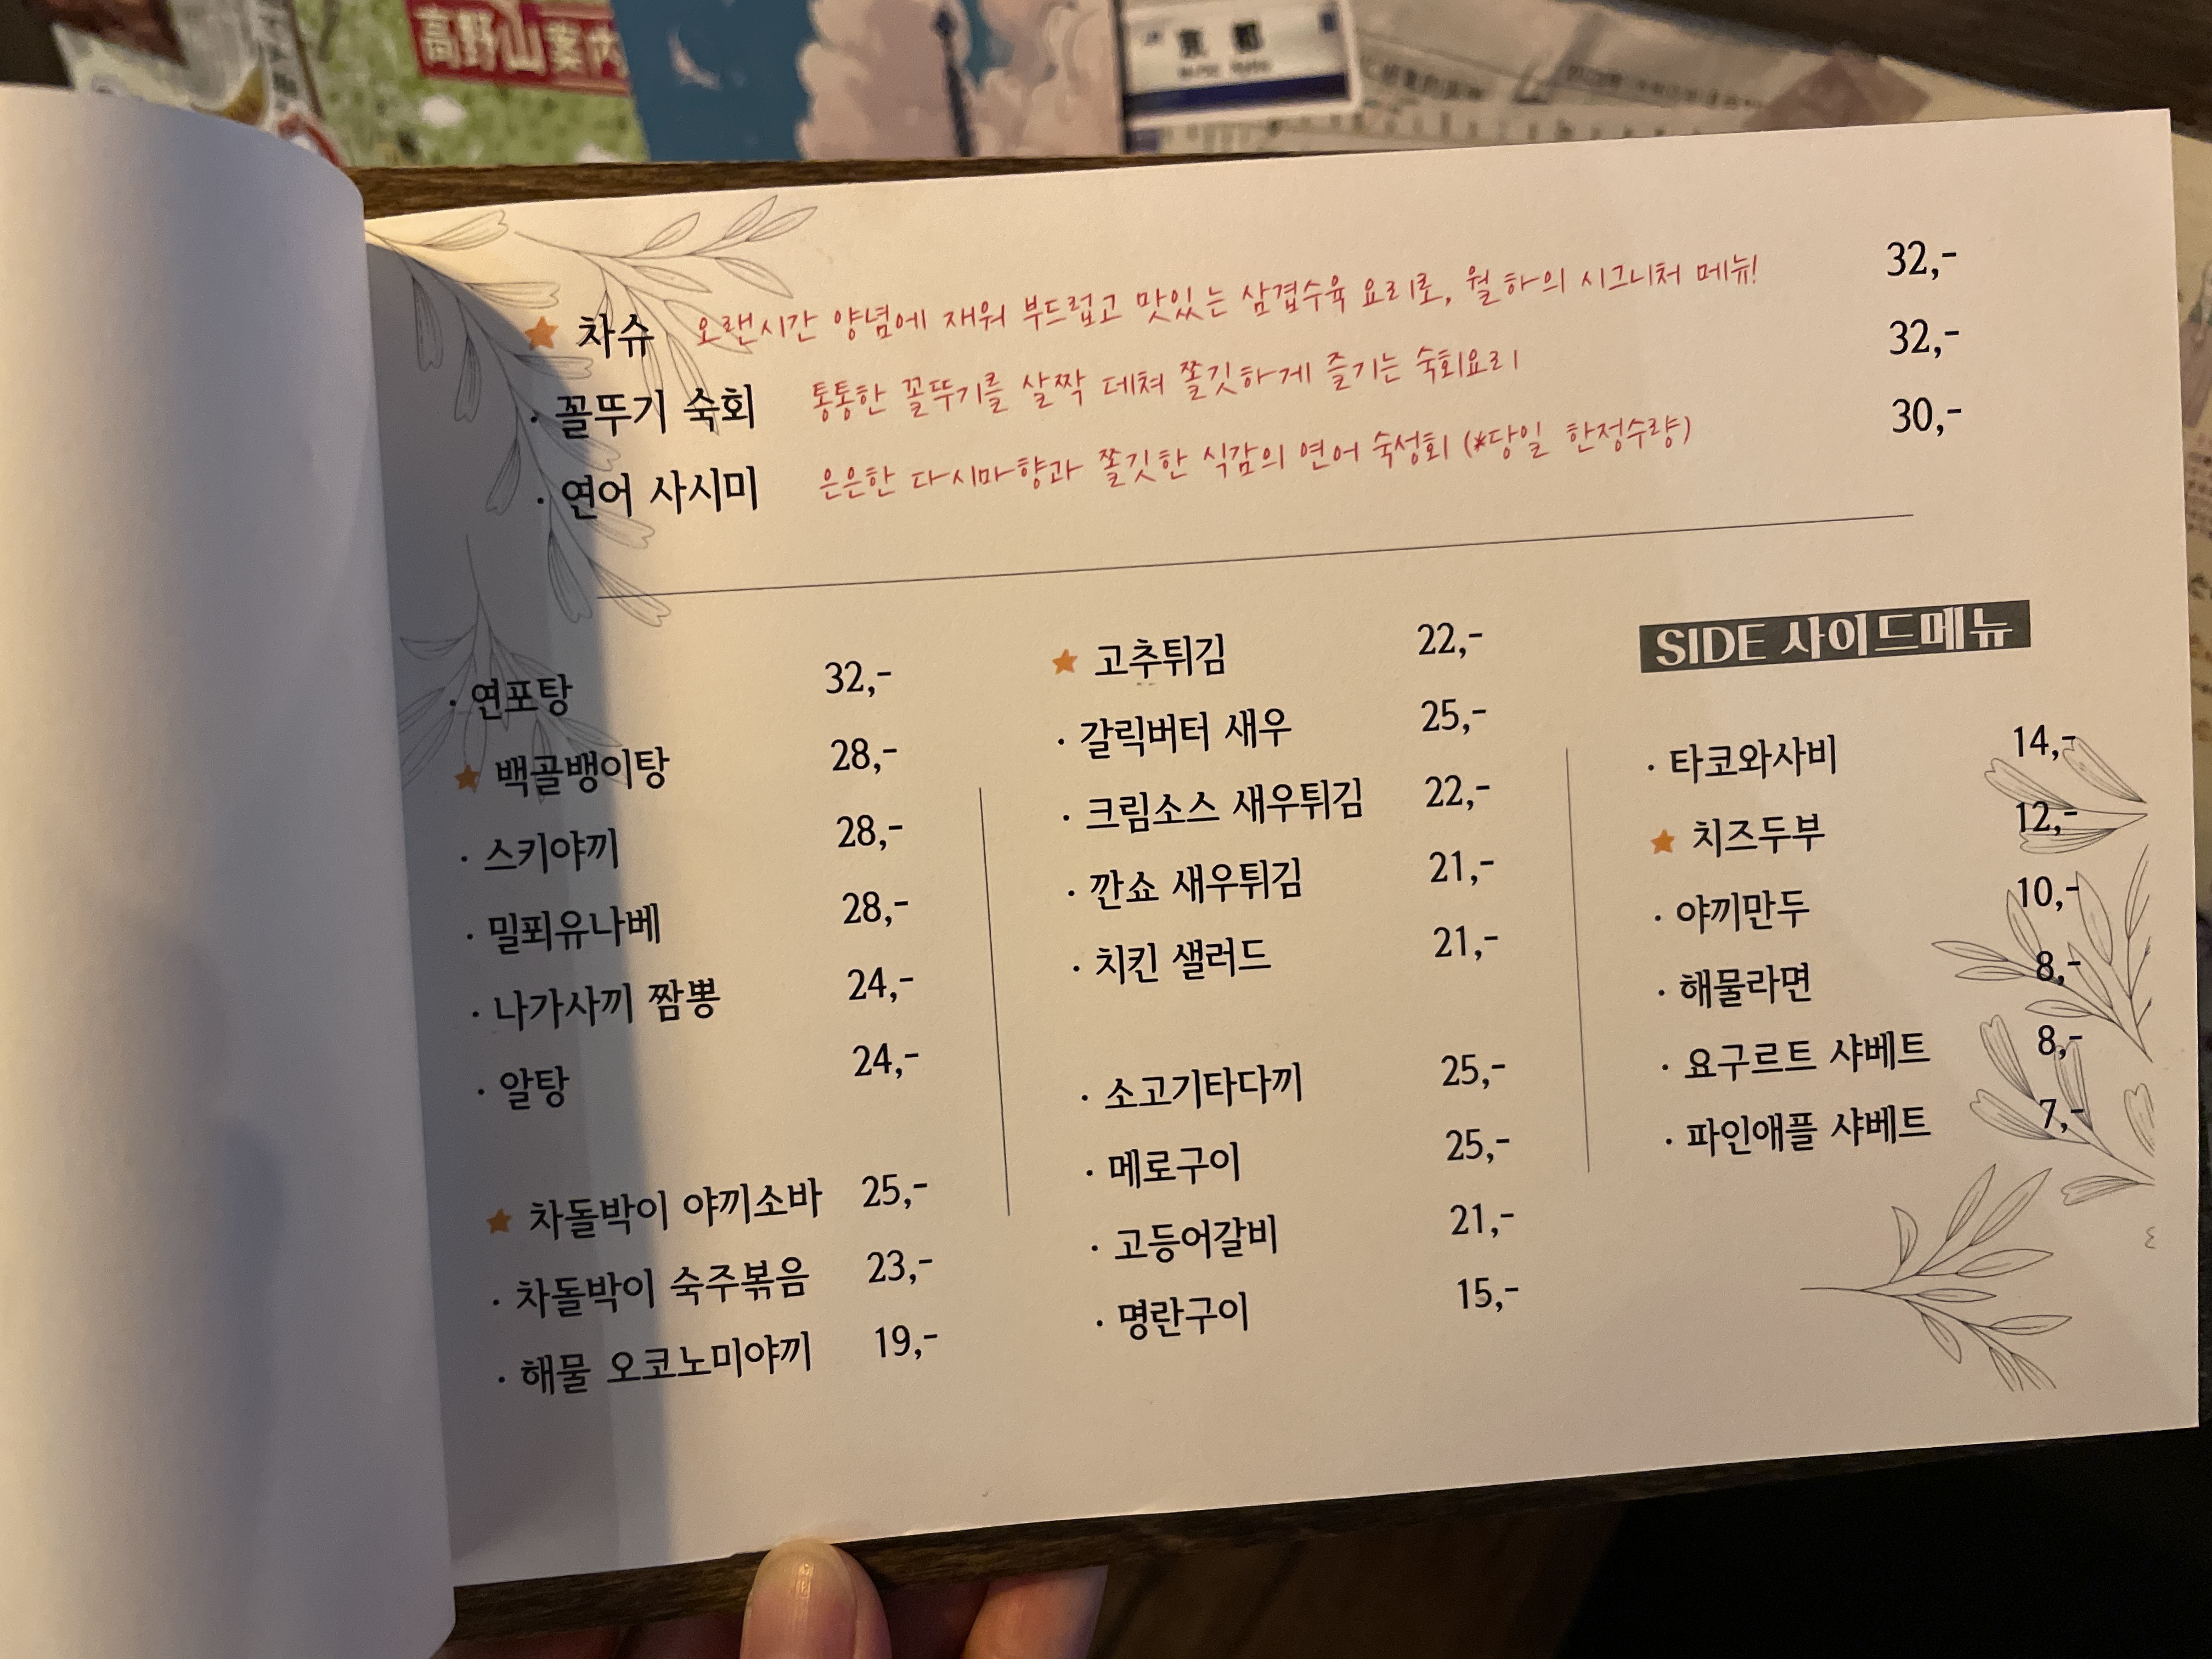 高野山案内
京都
차슈 오랜시간 양념에 재워 부드럽고 맛있는 삼겹수육 요리로, 월하의 시그니처 메뉴! 32,-
· 꼴뚜기 숙회 통통한 꼴뚜기를 살짝 데쳐 쫄깃하게 즐기는 숙회요리 32,-
· 연어 사시미 은은한 다시마향과 쫄깃한 식감의 연어 숙성회 (*당일 한정수량) 30,-
· 연포탕 32,-
백골뱅이탕 28,-
· 스키야끼 28,-
· 밀푀유나베 28,-
· 나가사끼 짬뽕 24,-
· 알탕 24,-
차돌박이 야끼소바 25,-
· 차돌박이 숙주볶음 23,-
· 해물 오코노미야끼 19,-
고추튀김 22,-
· 갈릭버터 새우 25,-
· 크림소스 새우튀김 22,-
· 깐쇼 새우튀김 21,-
· 치킨 샐러드 21,-
· 소고기타다끼 25,-
· 메로구이 25,-
· 고등어갈비 21,-
· 명란구이 15,-
SIDE 사이드메뉴
· 타코와사비 14,-
치즈두부 12,-
· 야끼만두 10,-
· 해물라면 8,-
· 요구르트 샤베트 8,-
· 파인애플 샤베트 7,-